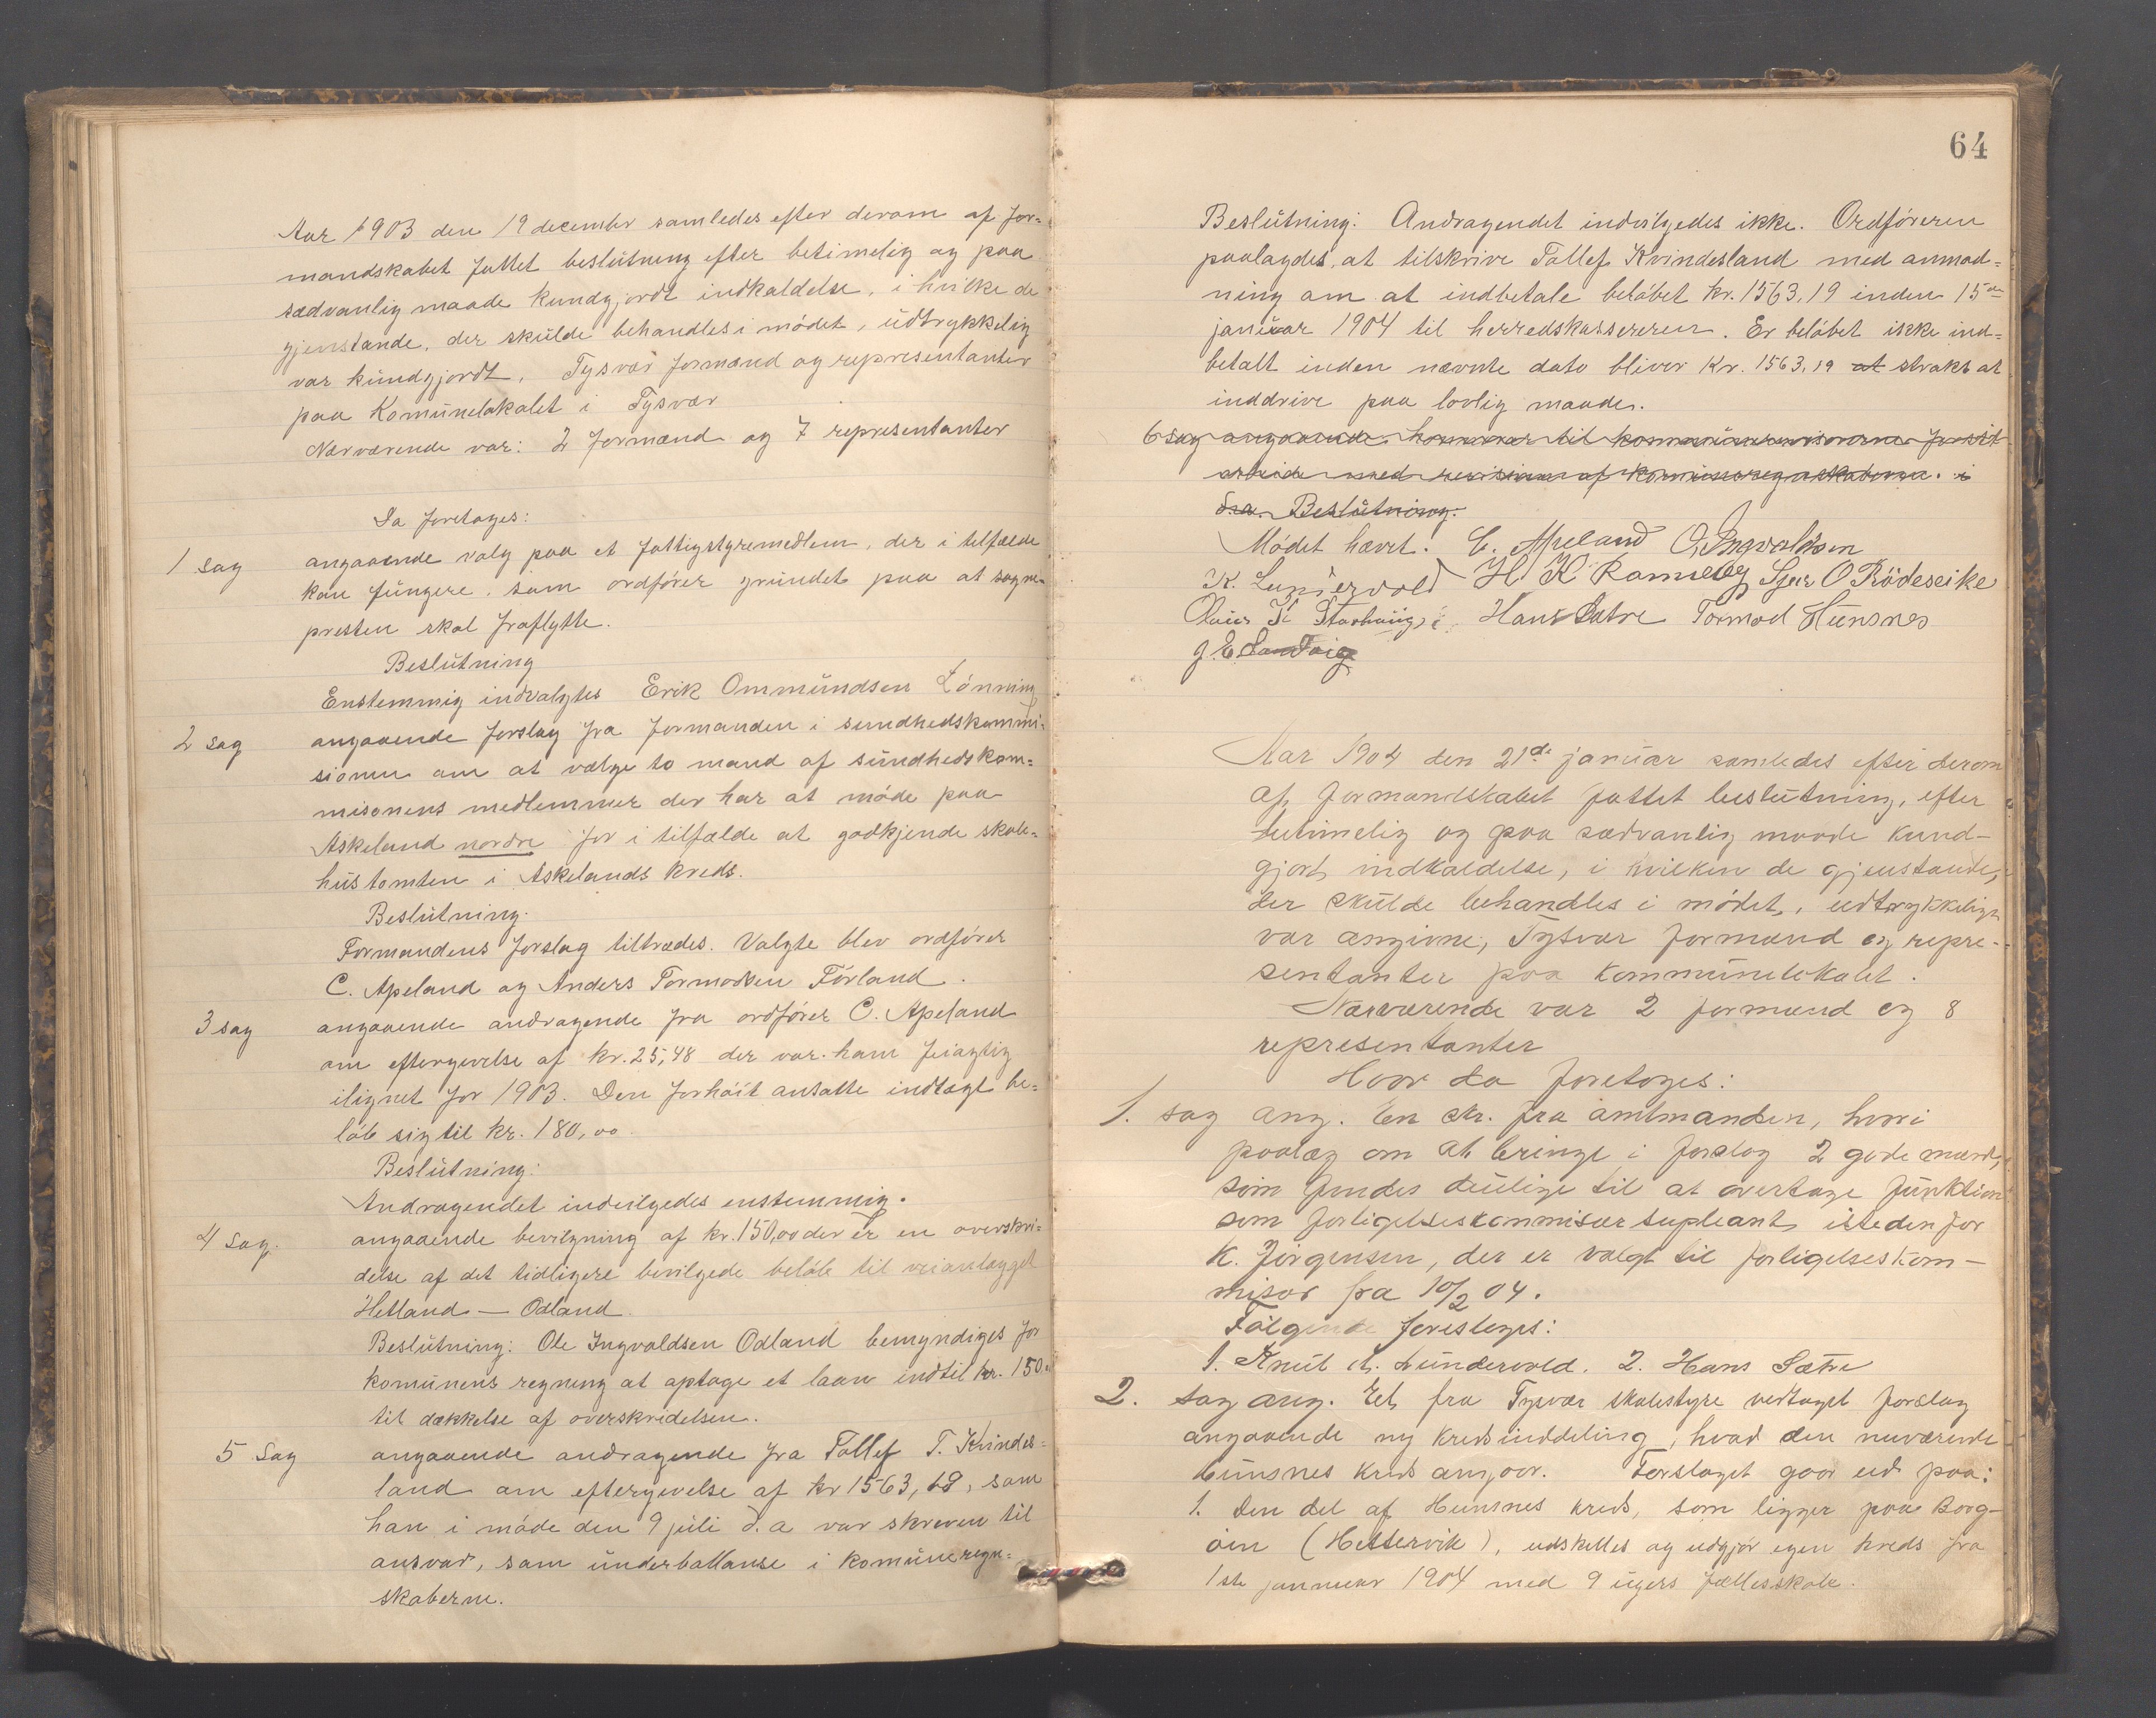 Aar 1903 den 19 december samledes efter derom af for=
mandskabet fattet beslutning efter betimelig og paa
sædvanlig maade kundgjordt indkaldelse, i hvilke de
gjenstande, der skulde behandles i mödet, udtrykkelig
var kundgjordt, Tysvær formænd og representanter
paa Komunelokalet i Tysvær
Nærværende var: 2 formænd og 7 representanter
Da foretages:
1 sag angaaende valg paa et fattigstyremedlem, der i tilfælde
kan fungere som ordförer grundet paa at sogne-
presten skal fraflytte.
Beslutning
Enstemmig indvalgtes Erik Ommundsen Lönning
2 sag angaaende forslag fra formanden i sundhedskommi-
sionen om at vælge to mand af sundhedskom=
misonens medlemmer der har at möde paa
Askeland nordre for i tilfælde at godkjende skole=
hustomten i Askelands kreds.
Beslutning.
Formandens forslag tiltrædes. Valgte blev ordförer
C. Apeland og Anders Tormodsen Förland.
3 sag angaaende andragende fra ordförer C. Apeland
om eftergivelse af kr. 25,48 der var ham feiagtig
ilignet for 1903. Den forhöit ansatte indtægt be=
löb sig til kr. 180,00
Beslutning:
Andragendet indvilgedes enstemmig.
4 sag. angaaende bevilgning af kr. 150,00 der er en overskri=
delse af det tidligere bevilgede belöb til veianlægget
Hetland — Odland
Beslutning: Ole Ingvaldsen Odland bemyndiges for
komunens regning at optage et laan indtil kr. 150
til dækkelse af overskridelsen.
5 Sag angaaende andragende fra Tollef T. Kvindes=
land om eftergivelse af kr 1563,19, som
han i möde den 9 juli d. a var skreven til
ansvar, som underballanse i komuneregn=
skaberne.
64
Beslutning: Andragendet indvilgedes ikke. Ordföreren
paalagdes at tilskrive Tollef Kvindesland med anmod=
ning om at indbetale belöbet kr. 1563,19 inden 15de
januar 1904 til herredskassereren. Er belöbet ikke ind=
betalt inden nævnte dato bliver Kr. 1563,19 at straks at
inddrive paa lovlig maade.
6 sag angaaende honorar til kommunerevisorerne for sit
arbeide med revision af Komuneregnskaberne. i
d.a. Beslutning.
Mödet hævet. C. Apeland O. Ingvaldsen
K. Lundervold H K Ramsvig Sjur O Rödeseike
Hans Sætre Tormod Hunsnes
g. E. Sandvig
Aar 1904 den 21de januar samledes efter derom
af formandskabet fattet beslutning, efter
betimelig og paa sædvanlig maade kund-
gjort indkaldelse, i hvilken de gjenstande,
der skulde behandles i mödet, udtrykkeligt
var angivne, Tysvær formænd og repre-
sentanter paa Kommunelokalet.
Nærværende var 2 formænd og 8
representanter
Hvor da foretoges:
1. sag ang. En skr. fra amtmanden, hvori
paalæg om at bringe i forslag 2 gode mænd,
som findes duelige til at overtage funktion
som forligelseskommisær supleant isteden for
K. Jörgensen, der er valgt til forligelseskom-
misær fra 10/2 04.
Fölgende foresloges:
1. Knut K. Lundervold. 2. Hans Sætre
2. sag ang. Et fra Tysvær skolestyre vedtaget forslag
angaaende ny kredsinddeling, hvad den nuværende
Hunsnes kreds angaar. Forslaget gaar ud paa:
1. Den del af Hunsnes kreds, som ligger paa Borg-
öin (Hettervik), udskilles og udgjör egen kreds fra
1ste januar 1904 med 9 ugers fællesskole.